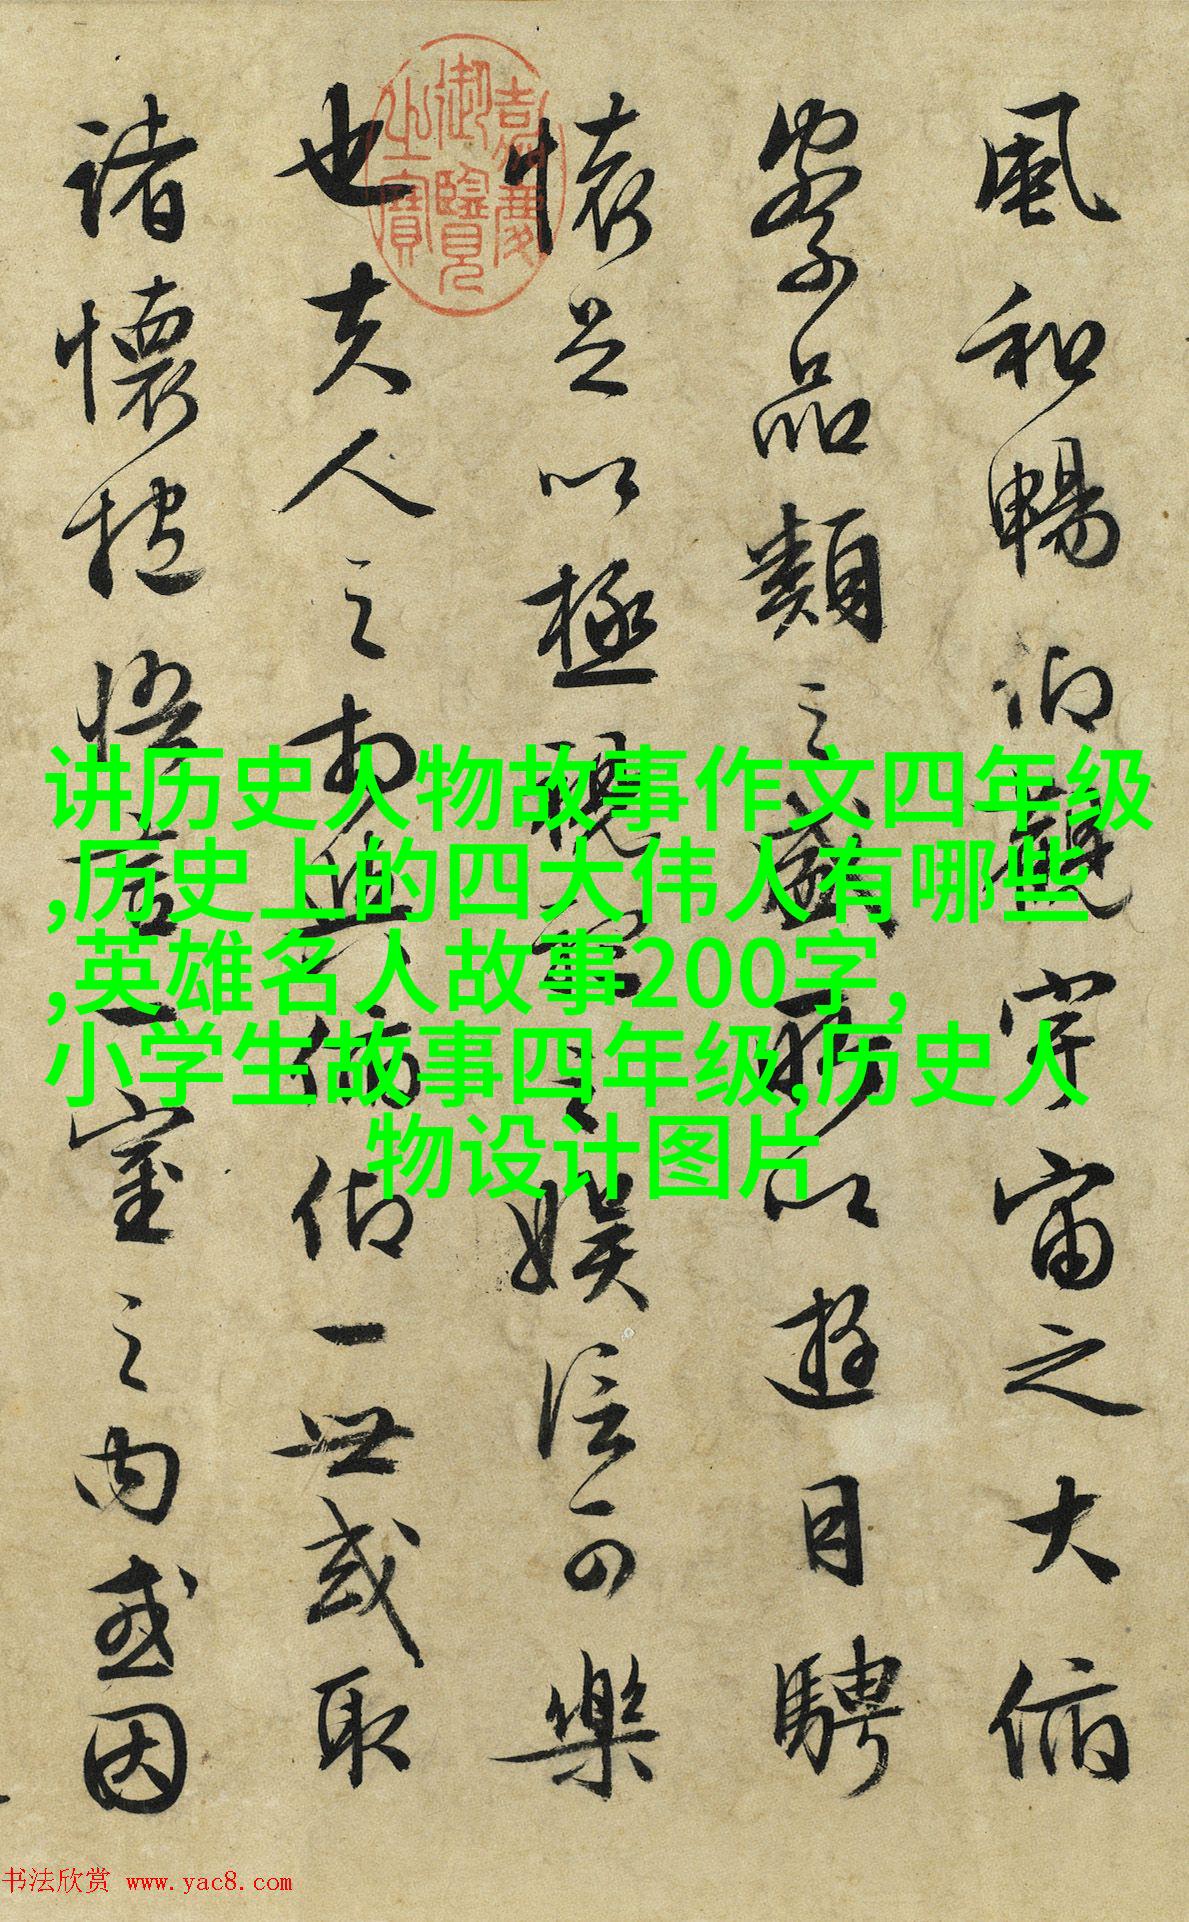 風和暢仰觀宇宙之大俯
察品類之盛所以遊目騁
懷足以極視聽之娛信可樂
也夫人之相與俯仰一世或取
諸懷抱悟言一室之內或因
嘉慶御覽之寶
讲历史人物故事作文四年级
,历史上的四大伟人有哪些
,英雄名人故事200字,
小学生故事四年级,历史人
物设计图片
书法欣赏 www.yac8.com